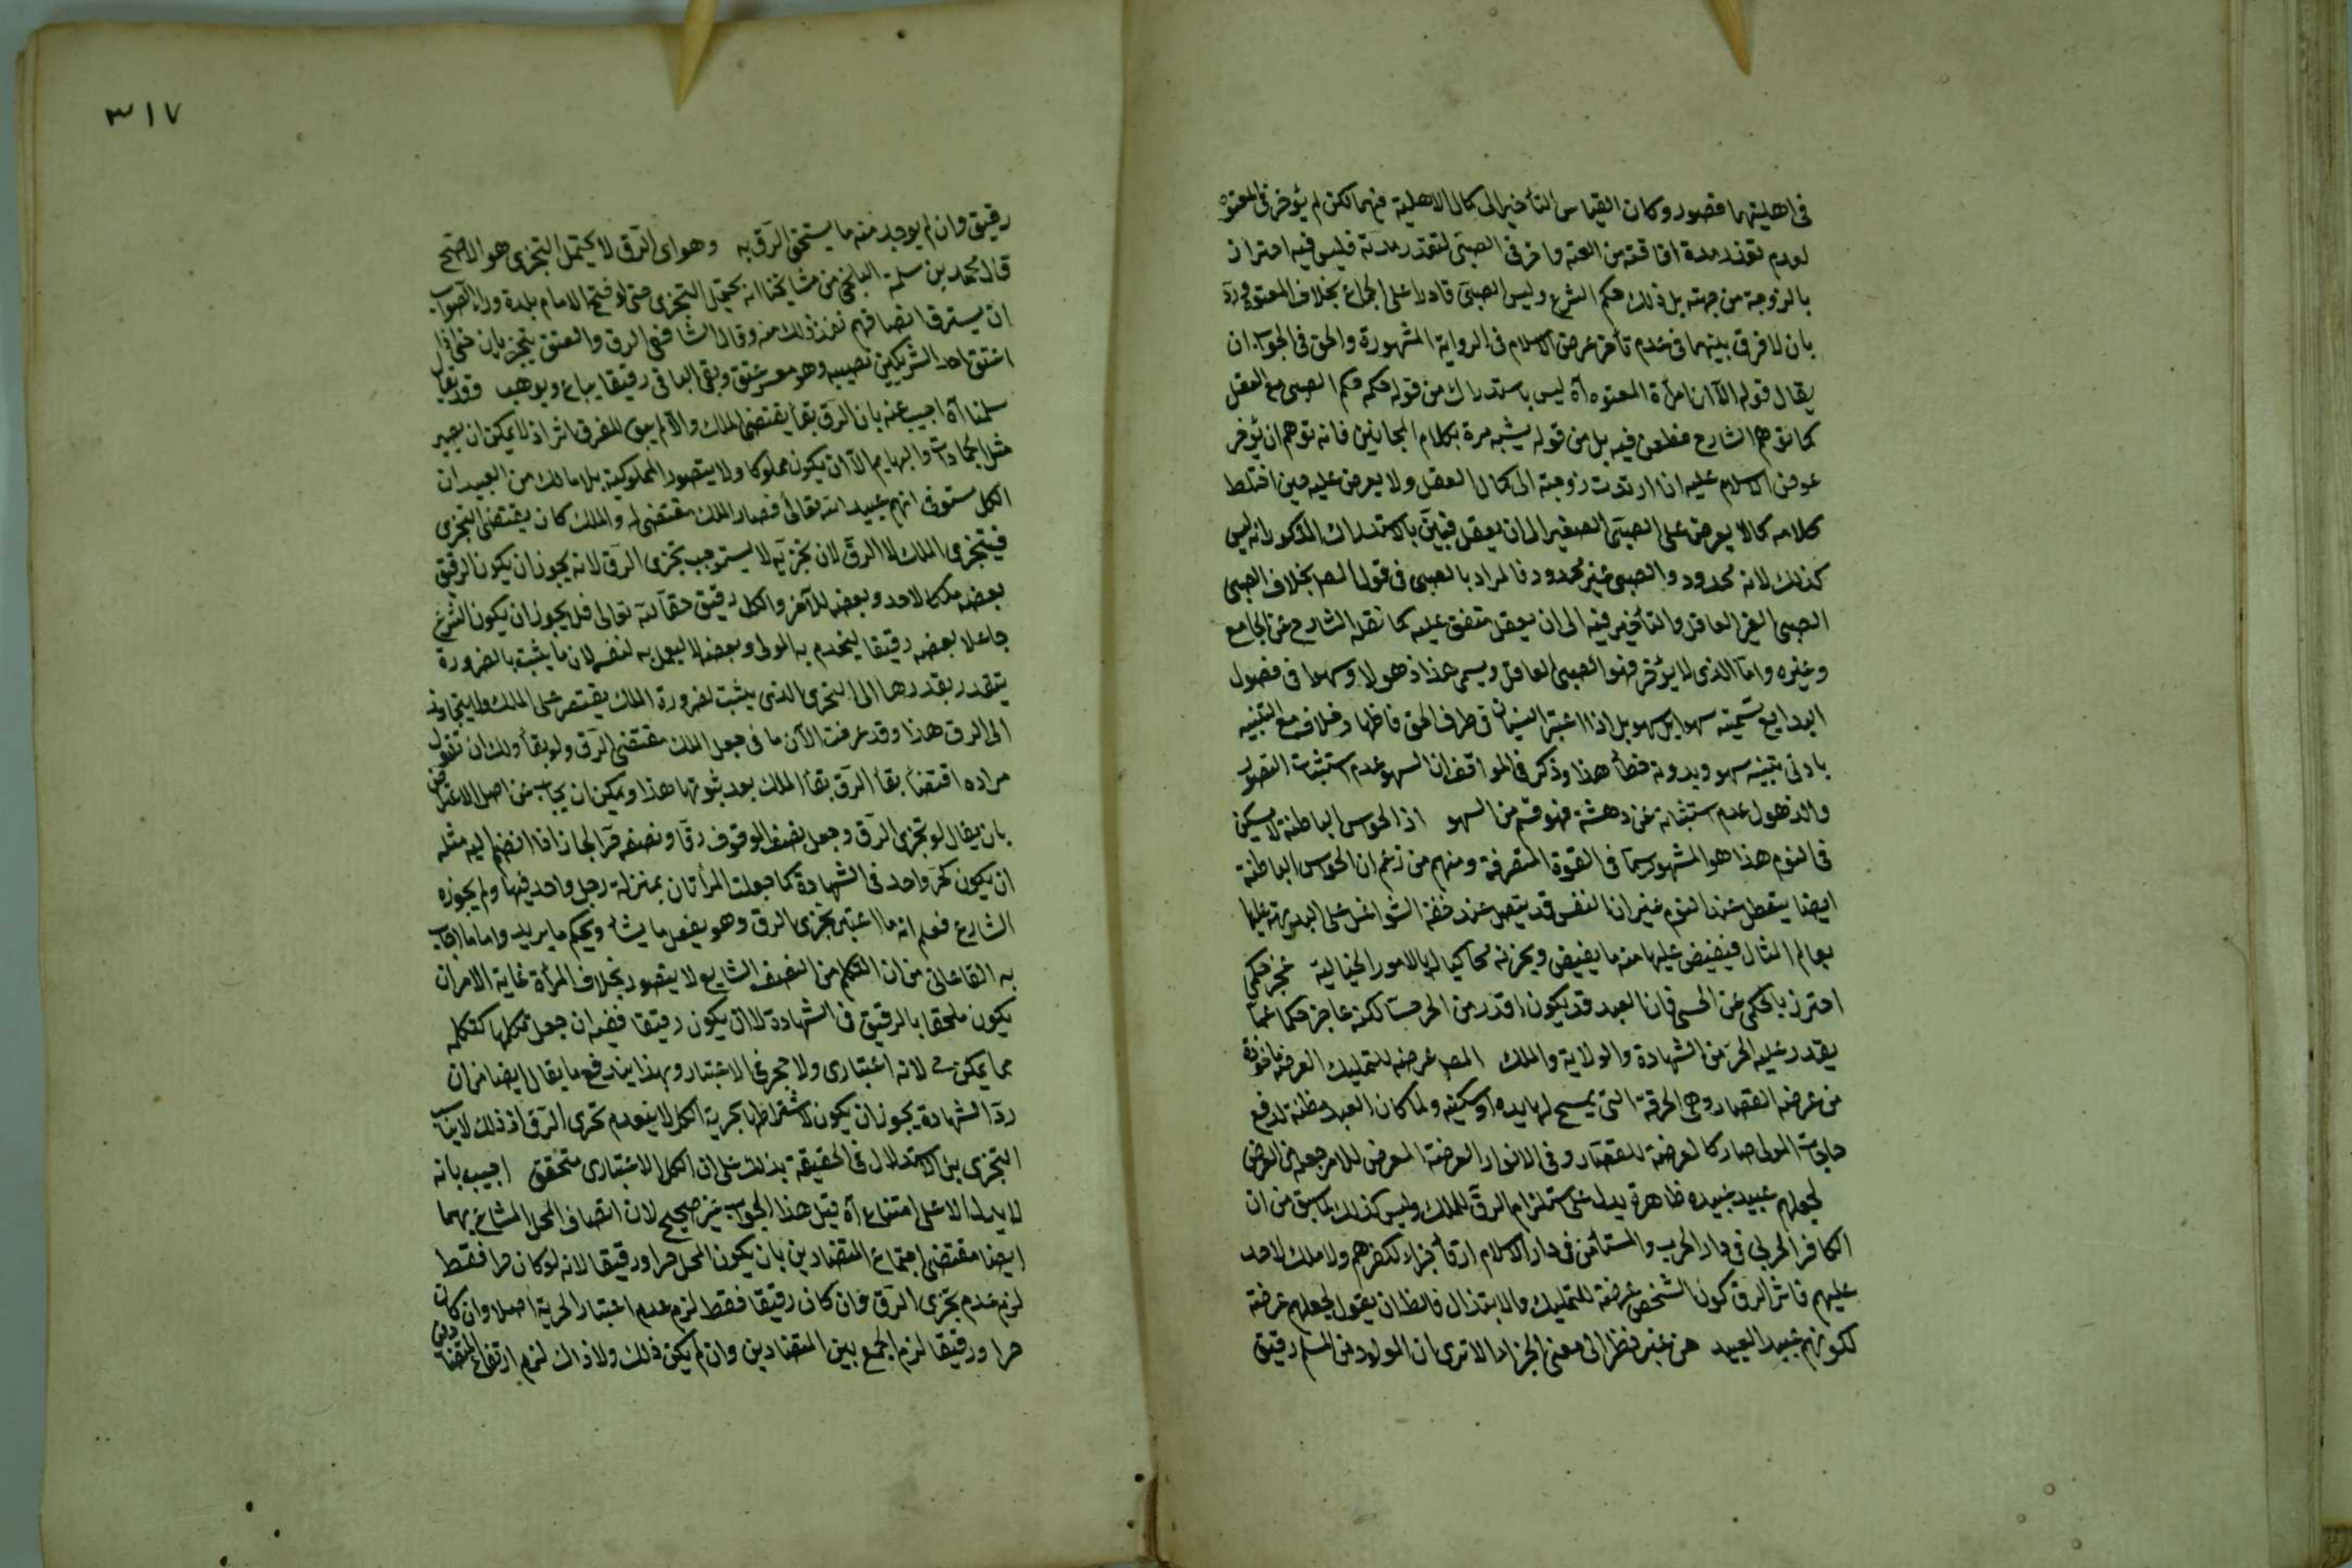 فى اهليتهما قصور وكان القياس التأخير الى كمال الاهلية فيهما لكن لم يؤخر فى المعتوه
لعدم تقدر مدة افاقته من العته واخر فى الصبى لتقدر مدته فليس فيه اضرار
بالزوجة من جهته بل ذلك حكم الشرع وليس الصبى قادرا على الجماع بخلاف المعتوه ورد
بان لا فرق بينهما فى عدم تأخر عرض الاسلام فى الرواية المشهورة والحق فى الجواب ان
يقال قوله الا ان امرأة المعتوه آه ليس باستدراك من قوله حكمه حكم الصبى مع العقل
كما توهم الشارح فطعن فيه بل من قوله يشبه مرة بكلام المجانين فانه توهم ان يؤخر
عرض الاسلام عليه اذا ارتدت زوجته الى كمال العقل ولا يعرض عليه حين اختلط
كلامه كما لا يعرض على الصبى الصغير الى ان يعقل فبين بالاستدراك المذكور انه ليس
كذلك لانه محدود والصبى غير محدود فالمراد بالصبى فى قول المصـ بخلاف الصبى
الصبى الغير العاقل والتأخير فيه الى ان يعقل متفق عليه كما نقله الشارح عن الجامع
وغيره واما الذى لا يؤخر فهو الصبى العاقل ويسمى هذا ذهولا وسهوا فى فصول
البدايع تسميته سهوا بل سهو بل اذا اعتبر النسيان فى طرف الحق فاظها وخلافه مع التنبيه
بادنى تنبيه سهو وبدونه خطأ هذا وذكر فى المواقف ان السهو عدم استثبات التصور
والذهول عدم استثباته عن دهشة فهو قسم من السهو اذ الحواس الباطنة لا تسكن
فى النوم هذا هو المشهور سيما فى القوة المتصرفة ومنهم من زعم ان الحواس الباطنة
ايضا يتعطل عند النوم غير ان النفس قد يتصل عند خفة الشواغل على البدن عليها
بعالم المثال فيفيض عليها منه ما يفيض ويخزنه محاكيا له بالامور الخيالية عجز حكمى
احترز بالحكمى عن الحسى فان العبد قد يكون اقدر من الحر حسا لكنه عاجز حكما عما
يقدر عليه الحر من الشهادة والولاية والملك المصـ عرضه للتمليك العرضة مأخوذة
من عرضة القصار وهى الخرقة التى يمسح لها يده او سكينه ولما كان العبد مظنة لدفع
حاجات المولى صار كالعرضة للقصار وفى الانوار العرضة المعرض للامر جعله من العرض
لجعلهم عبيد عبيده ظاهره يدل على استلزام الرق للملك وليس كذلك لما سبق من ان
الكافر الحربى فى دار الحرب والمستأمن فى دار الاسلام ارقاء جزاء لكفرهم ولا ملك لاحد
عليهم فاثر الرق كون الشخص عرضة للتمليك والابتذال فالظ ان يقول لجعلهم عرضة
لكونهم عبيد العبيد من غير نظر الى معنى الجزاء الا ترى ان المولود من المسلم رقيق
٣١٧
رقيق وان لم يوجد منه ما يستحق الرق به وهو اى الرق لا يحتمل التجزى هو الاصح
قال محمد بن سلمة البلخى من مشايخنا انه يحتمل التجزى حتى لو فتح الامام بلدة ورأى الصواب
ان يسترق انصافهم نفذ ذلك منه وقال الشافعى الرق والعتق يتجزيان حتى اذا
اعتق احد الشريكين نصيبه وهو معسر عتق وبقى الباقى رقيقا يباع ويوهب وقد يقال
سلمنا آه اجيب عنه بان الرق بقاء يقتضى الملك والا لم يبق للمفرق اثر اذ لا يمكن ان يصير
مثل الجمادات والبهايم الا ان يكون مملوكا ولا يتصور المملوكية بلا مالك من العبيد ان
الكل مستوفى انهم عبيد الله تعالى فصار الملك مقتضى له والملك كان يقتضى التجزى
فيتجزى الملك لا الرق لان تجزيه لا يستوجب تجزى الرق لانه يجوز ان يكون الرقيق
بعضه ملكا لاحد وبعضه للآخر والكل رقيق حقا لله تعالى فلم يجوز ان يكون الشرع
جاعلا بعضه رقيقا ليخدم به المولى وبعضه لا ليعمل به لنفسه لان ما يثبت بالضرورة
يتقدر بقدرها الى التجزى الذى يثبت لضرورة الملك يقتصر على الملك ولا يتجاوز
الى الرق هذا وقد عرفت الآن ما فى جعل الملك مقتضى الرق ولو بقاء ولك ان تقول
مراده اقتضاء بقاء الرق بقاء الملك بعد ثبوتها هذا ويمكن ان يجاب عن اصل الاعتراض
بان يقال لو تجزى الرق وجعل نصف الموقوف رقا ونصفه حرا لجاز اذا انضم اليه مثله
ان يكون كحر واحد فى الشهادة كما جعلت المرأتان بمنزلة رجل واحد فيها ولم يجوزه
الشارع فعلم انه ما اعتبر تجزى الرق وهو يفعل ما يشاء ويحكم ما يريد واما ما اجاب
به القاعانى من ان التكلم من النصف الشايع لا يتصور بخلاف المرأة غاية الامر ان
يكون ملحقا بالرقيق فى الشهادة لا ان يكون رقيقا ففيه ان جعل تكلمها كتكلمه
مما يمكن لانه اعتبارى ولا حجر فى الاعتبار وبهذا يندفع ما يقال ايضا من ان
رد الشهادة يجوز ان يكون لاشتراطها بحرية الكل لا ينعدم تجزى الرق اذ ذلك لا ينافى
التجزى بل الاستدلال فى الحقيقة بذلك على ان الكل الاعتبارى متحقق اجيب بانه
لا يدل الا على امتناع آه قيل هذا الجواب غير صحيح لان اتصاف المحل المشاع بهما
ايضا مقتضى اجتماع المتضادين بان يكون المحل حرا ورقيقا لانه لو كان حرا فقط
لزم عدم تجزى الرق وان كان رقيقا فقط لزم عدم اعتبار الحرية اصلا وان كان
حرا ورقيقا لزم الجمع بين المتضادين وان لم يكن ذلك ولا ذاك لزم ارتفاع المتضادين